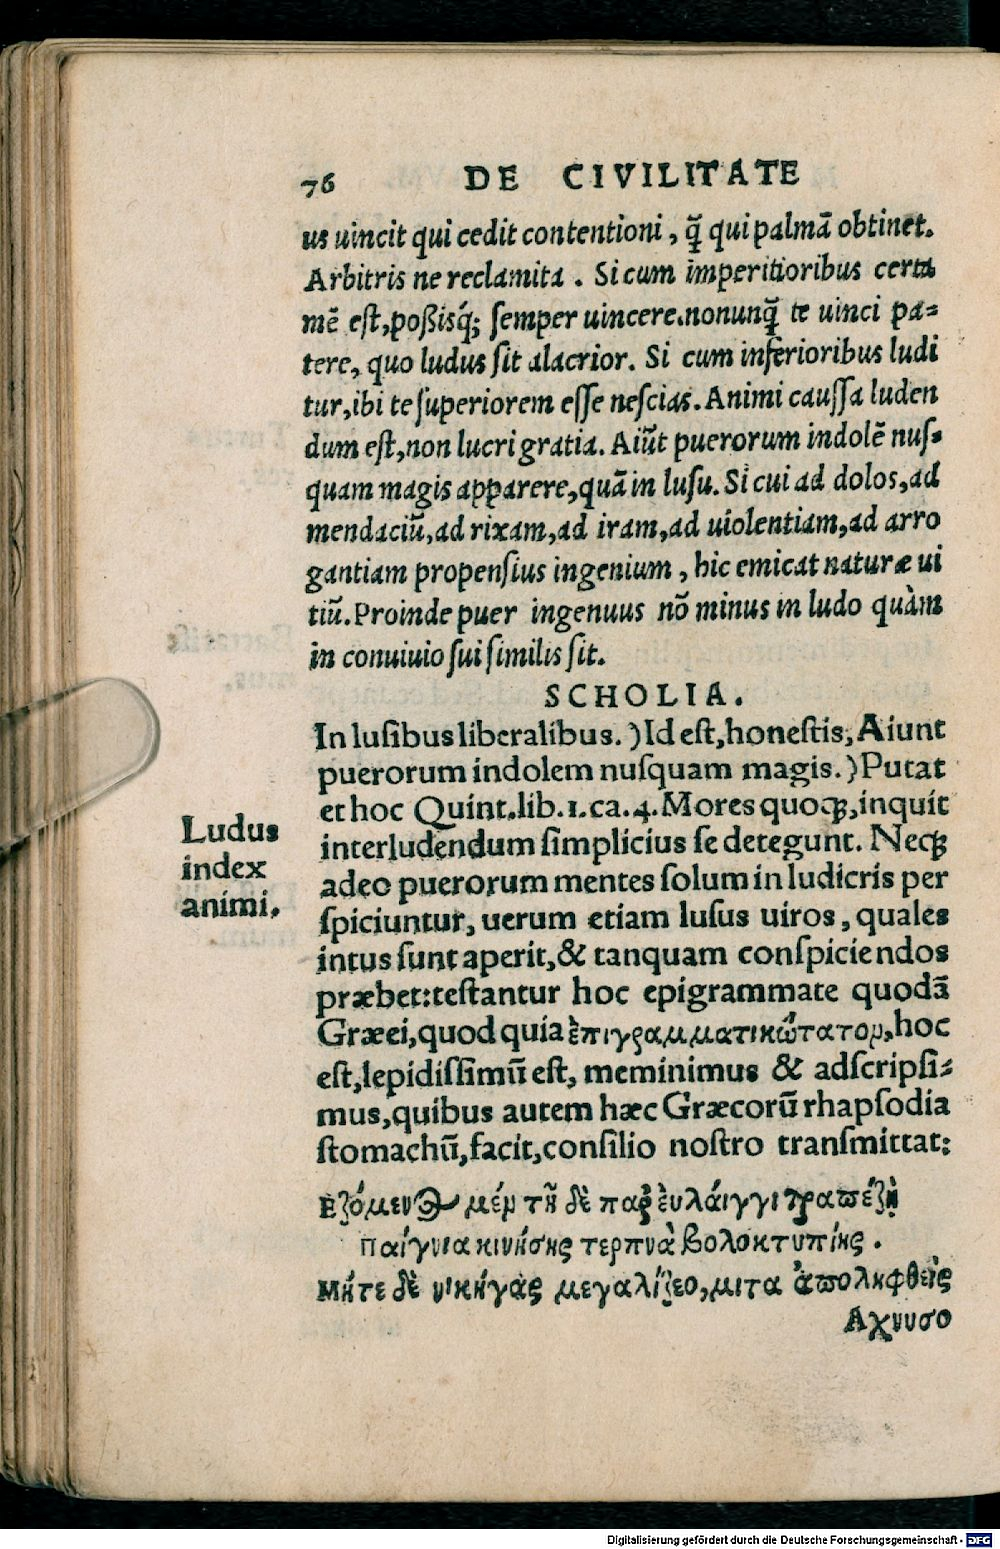 76 DE CIVILITATE
us uincit qui cedit contentioni, q̃ qui palmã obtinet.
Arbitris ne reclamita. Si cum imperitioribus certa
mẽ est, poßisq́; semper uincere. nonunq̃ te uinci pa-
tere, quo ludus sit alacrior. Si cum inferioribus ludi
tur, ibi te superiorem esse nescias. Animi caussa luden
dum est, non lucri gratia. Aiũt puerorum indolẽ nus-
quam magis apparere, quã in lusu. Si cui ad dolos, ad
mendaciũ, ad rixam, ad iram, ad uiolentiam, ad arro
gantiam propensius ingenium, hic emicat naturæ ui
tiũ. Proinde puer ingenuus nõ minus in ludo quàm
in conuiuio sui similis sit.
SCHOLIA.
In lusibus liberalibus.) Id est, honestis, Aiunt
puerorum indolem nusquam magis.) Putat
et hoc Quint. lib. 1. ca. 4. Mores quoq;, inquit
inter ludendum simplicius se detegunt. Neq;
adeo puerorum mentes solum in ludicris per
spiciuntur, uerum etiam lusus uiros, quales
intus sunt aperit, & tanquam conspiciendos
præbet: testantur hoc epigrammate quodã
Græci, quod quia ἐπιγραμματικώτατον, hoc
est, lepidissimũ est, meminimus & adscripsi-
mus, quibus autem hæc Græcorũ rhapsodia
stomachũ, facit, consilio nostro transmittat:
Ἑζόμενος μέν τῇ δὲ παρ' ἐυλάιγγι τραπέζῃ
Παίγνια κινήσης τερπνὰ βολοκτυπίης.
Μήτε δὲ νικήγας μεγαλίζεο, μιτα ἀπολειφθεὶς
Αχνυσο
Ludus
index
animi.
Digitalisierung gefördert durch die Deutsche Forschungsgemeinschaft - DFG